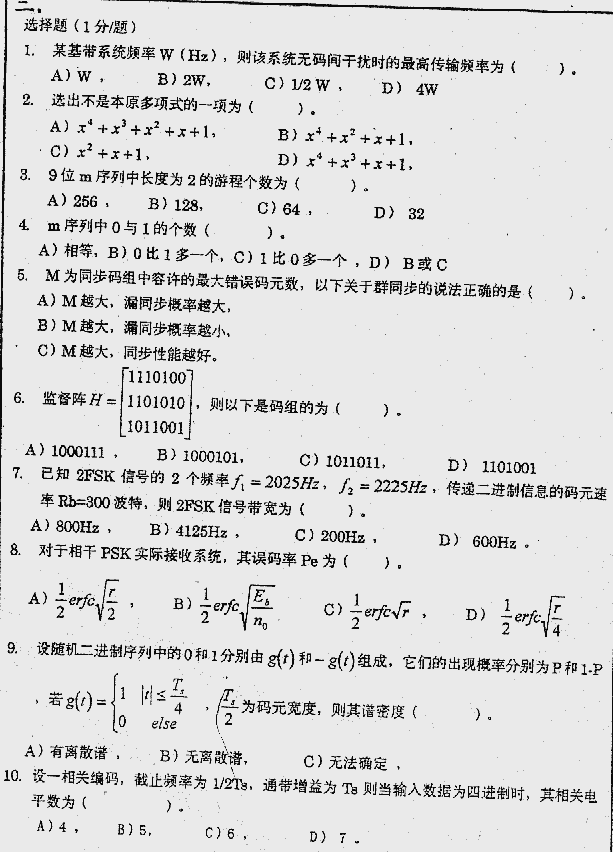 二.
选择题（1分/题）
1. 某基带系统频率W（Hz），则该系统无码间干扰时的最高传输频率为（ ）。
A）W， B）2W， C）1/2 W， D） 4W
2. 选出不是本原多项式的一项为（ ）。
A）x⁴+x³+x²+x+1， B）x⁴+x²+x+1，
C）x²+x+1， D）x⁴+x³+x+1，
3. 9位m序列中长度为2的游程个数为（ ）。
A）256， B）128， C）64， D） 32
4. m序列中0与1的个数（ ）。
A）相等，B）0比1多一个，C）1比0多一个，D） B或C
5. M为同步码组中容许的最大错误码元数，以下关于群同步的说法正确的是（ ）。
A）M越大，漏同步概率越大，
B）M越大，漏同步概率越小，
C）M越大，同步性能越好。
6. 监督阵H=[1110100 1101010 1011001]，则以下是码组的为（ ）。
A）1000111， B）1000101， C）1011011， D） 1101001
7. 已知 2FSK 信号的 2 个频率f₁=2025Hz，f₂=2225Hz，传递二进制信息的码元速
率Rb=300波特，则2FSK信号带宽为（ ）。
A）800Hz， B）4125Hz， C）200Hz， D） 600Hz。
8. 对于相干PSK实际接收系统，其误码率Pe为（ ）。
A）1/2 erfc√(r/2)， B）1/2 erfc√(E_b/n₀) C）1/2 erfc√r， D） 1/2 erfc√(r/4)
9. 设随机二进制序列中的0和1分别由g(t)和－g(t)组成，它们的出现概率分别为P和1-P
，若g(t)={1 |t|≤T_s/4 0 else，T_s/2为码元宽度，则其谱密度（ ）。
A）有离散谱， B）无离散谱， C）无法确定，
10. 设一相关编码，截止频率为1/2Ts，通带增益为Ts则当输入数据为四进制时，其相关电
平数为（ ）。
A）4， B）5， C）6， D） 7。